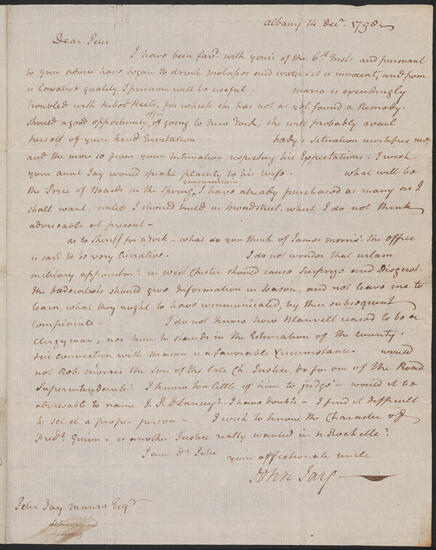 Albany 14 Decr. 1798
Dear Peter
I have been favd. with yours of the 6th Inst. and pursuant
to your advice have began to drink molasses and water - it is innocent, and from
a Laxative quality, I presume will be useful. Maria is exceedingly
troubled with kibed Heels, for which she has not as yet found a Remedy -
should a good opportunity offer of going to New York, she will probably avail
herself of your kind Invitation Situation mortifies me,
and the more so from your Intimation respecting his Expectations. I wish
your aunt Jay would speak plainly to his wife. What will be
the Price of Boards in the Spring, is uncertain I have already purchased as many as I
shall want, unless I should build in Broadstreet, which I do not think
adviseable at present -
as to Sheriff for N York - what do you think of James Morris? the office
is said to be very lucrative. I do not wonder that certain
military appointmts. in West Chester should cause Surprize and Disgust.
the Fœderalists should give Information in Season, and not leave me to
learn, what they ought to have communicated, by their subsequent
complaints - I do not know how Blauvelt ceased to be a
clergyman, nor how he stands in the Estimation of the county.
His connection with Mason is a favorable Circumstance. would
not Rob. Morris the Son of the late Ch. Justice, do for one of the Road
Superintendents? I know too little of him to judge - would it be
adviseable to name J. P. DLancey? I have Doubts - I find it difficult
to select a proper person - I wish to know the Character of
Fredk. Guion - is another Justice really wanted in N Rochelle?
I am Dr. Peter
your affectionate uncle
John Jay
Peter Jay Munro Esqr.